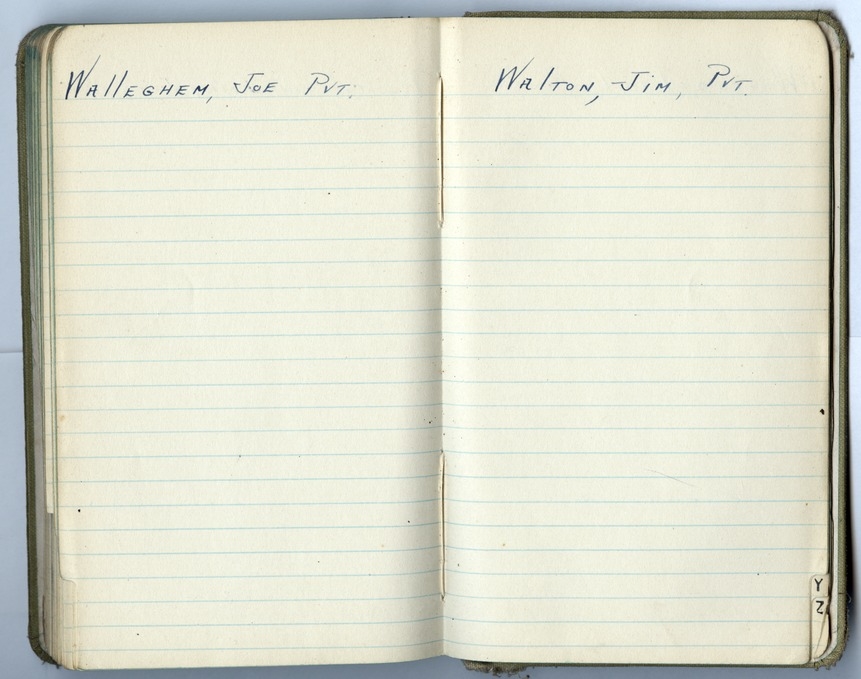 Walleghem, Joe Pvt.
Walton, Jim, Pvt.
Y
Z